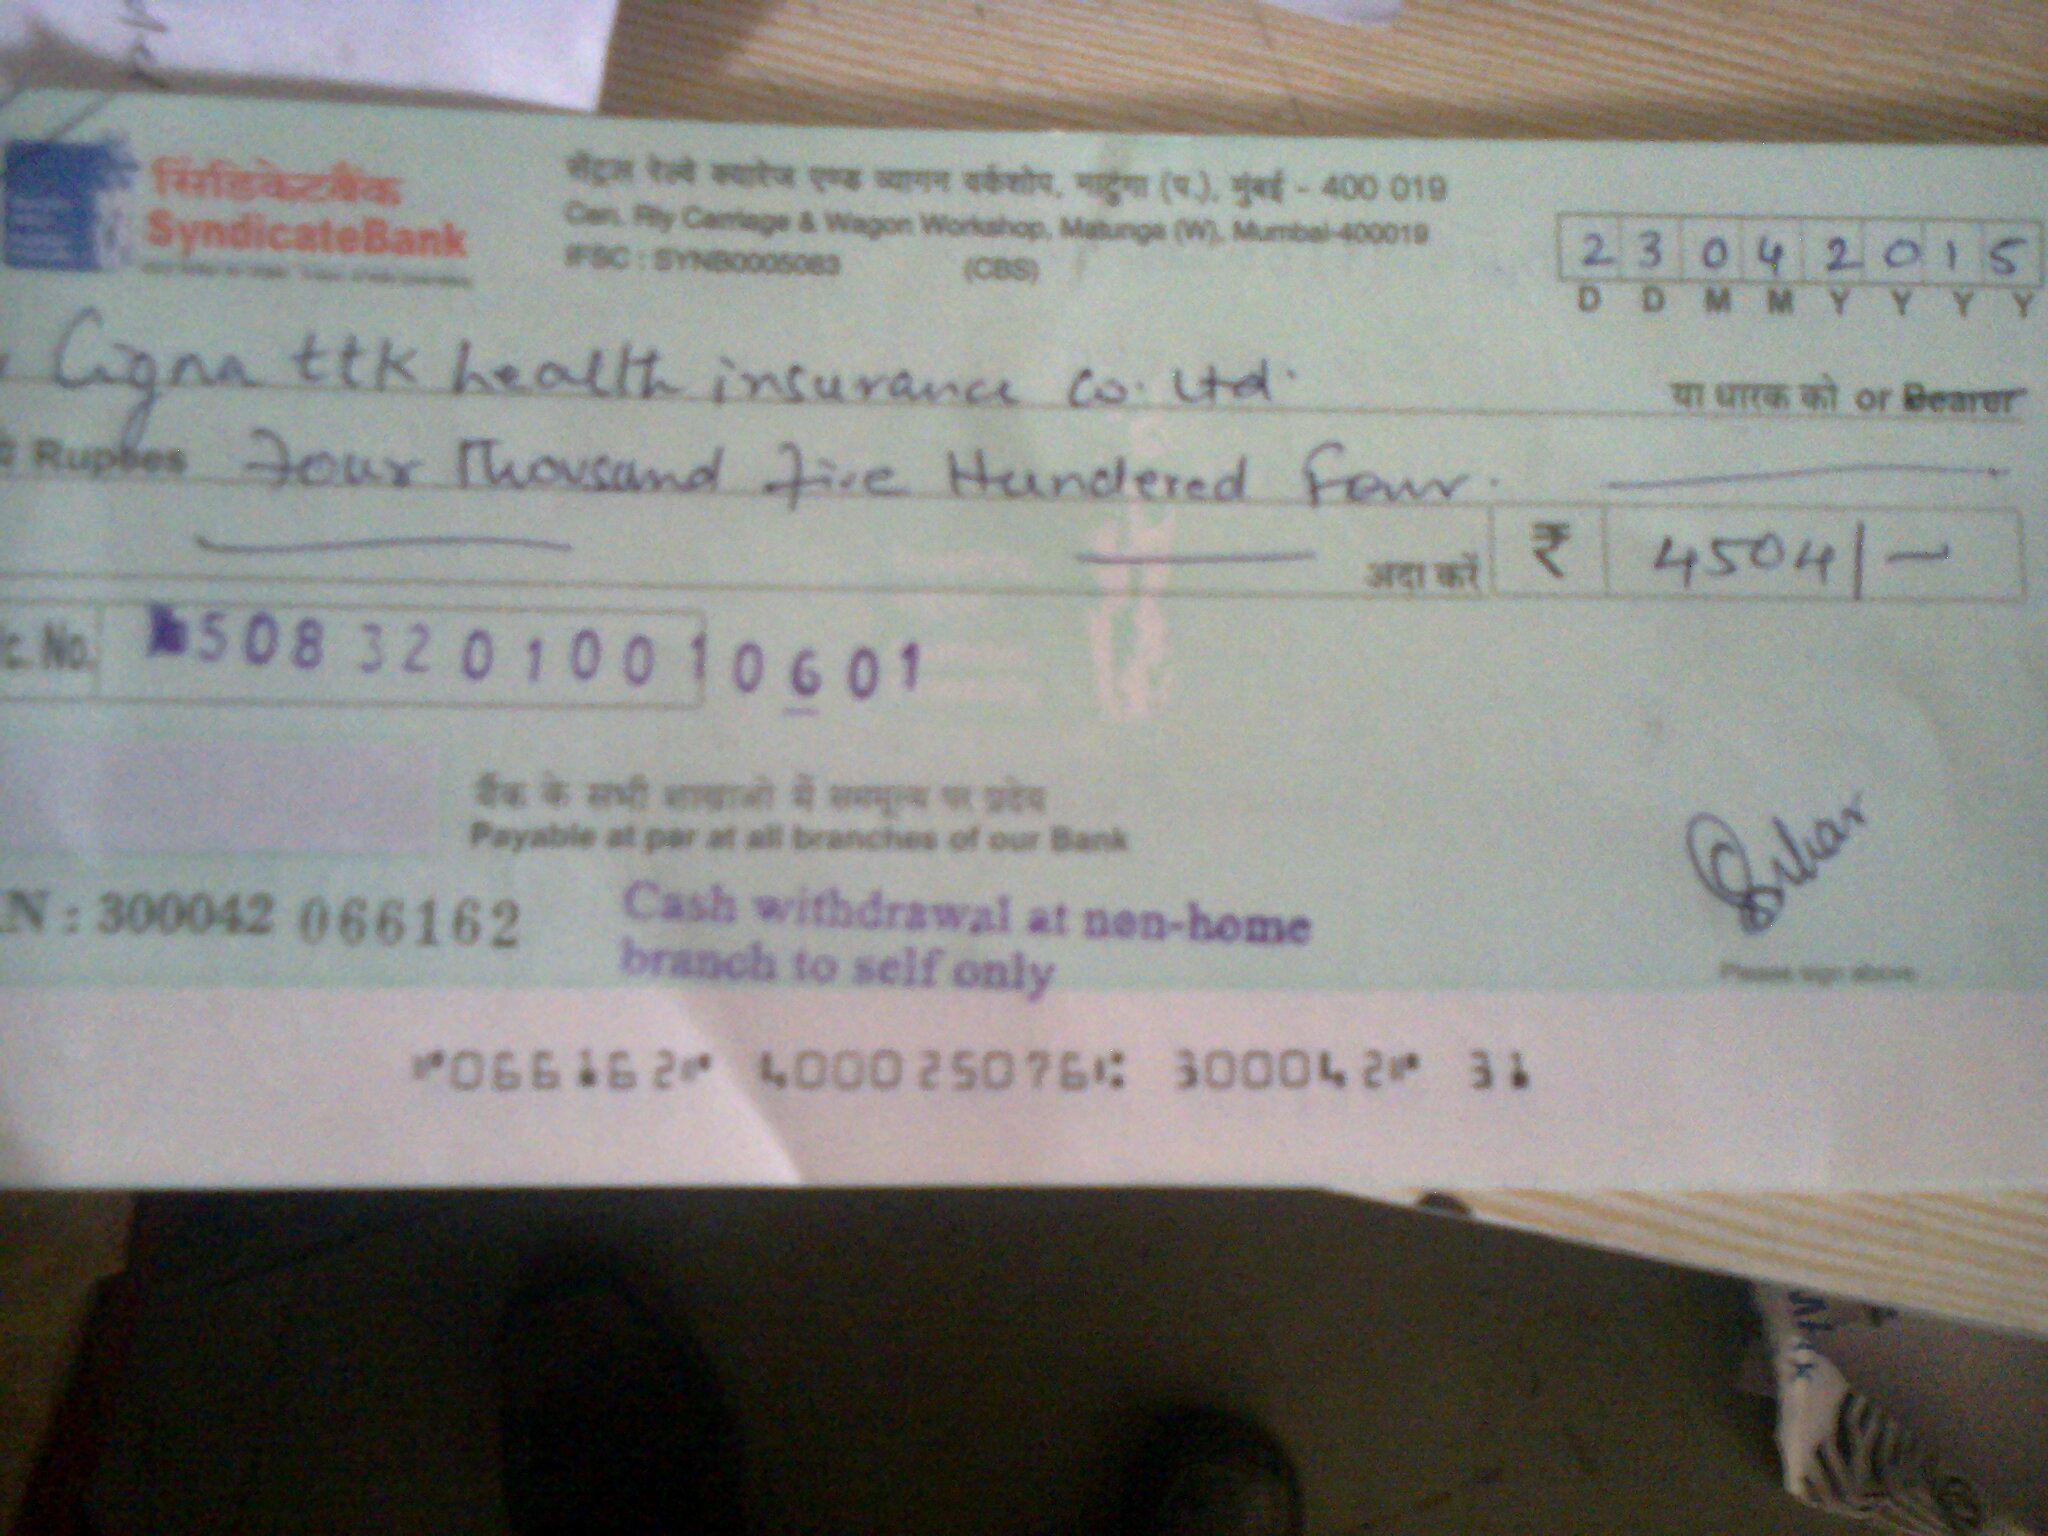 सिंडिकेटबैंक
SyndicateBank
सेंट्रल रेल्वे क्यारेज एण्ड व्यागन वर्कशोप, माटुंगा (प.), मुंबई - 400 019
Cen. Rly Carriage & Wagon Workshop, Matunga (W), Mumbai-400019
IFSC : SYNB0005083 (CBS)
2 3 0 4 2 0 1 5
D D M M Y Y Y Y
Cigna ttk health insurance co. Ltd.
या धारक को or Bearer
Rupees Four Thousand Five Hundered Four.
अदा करें ₹ 4504/-
c. No. 50832010010601
बैंक के सभी शाखाओं में सममूल्य पर प्रदेय
Payable at par at all branches of our Bank
N : 300042 066162
Cash withdrawal at non-home
branch to self only
Please sign above
⑈066162⑈ 400025076⑆ 300042⑈ 31